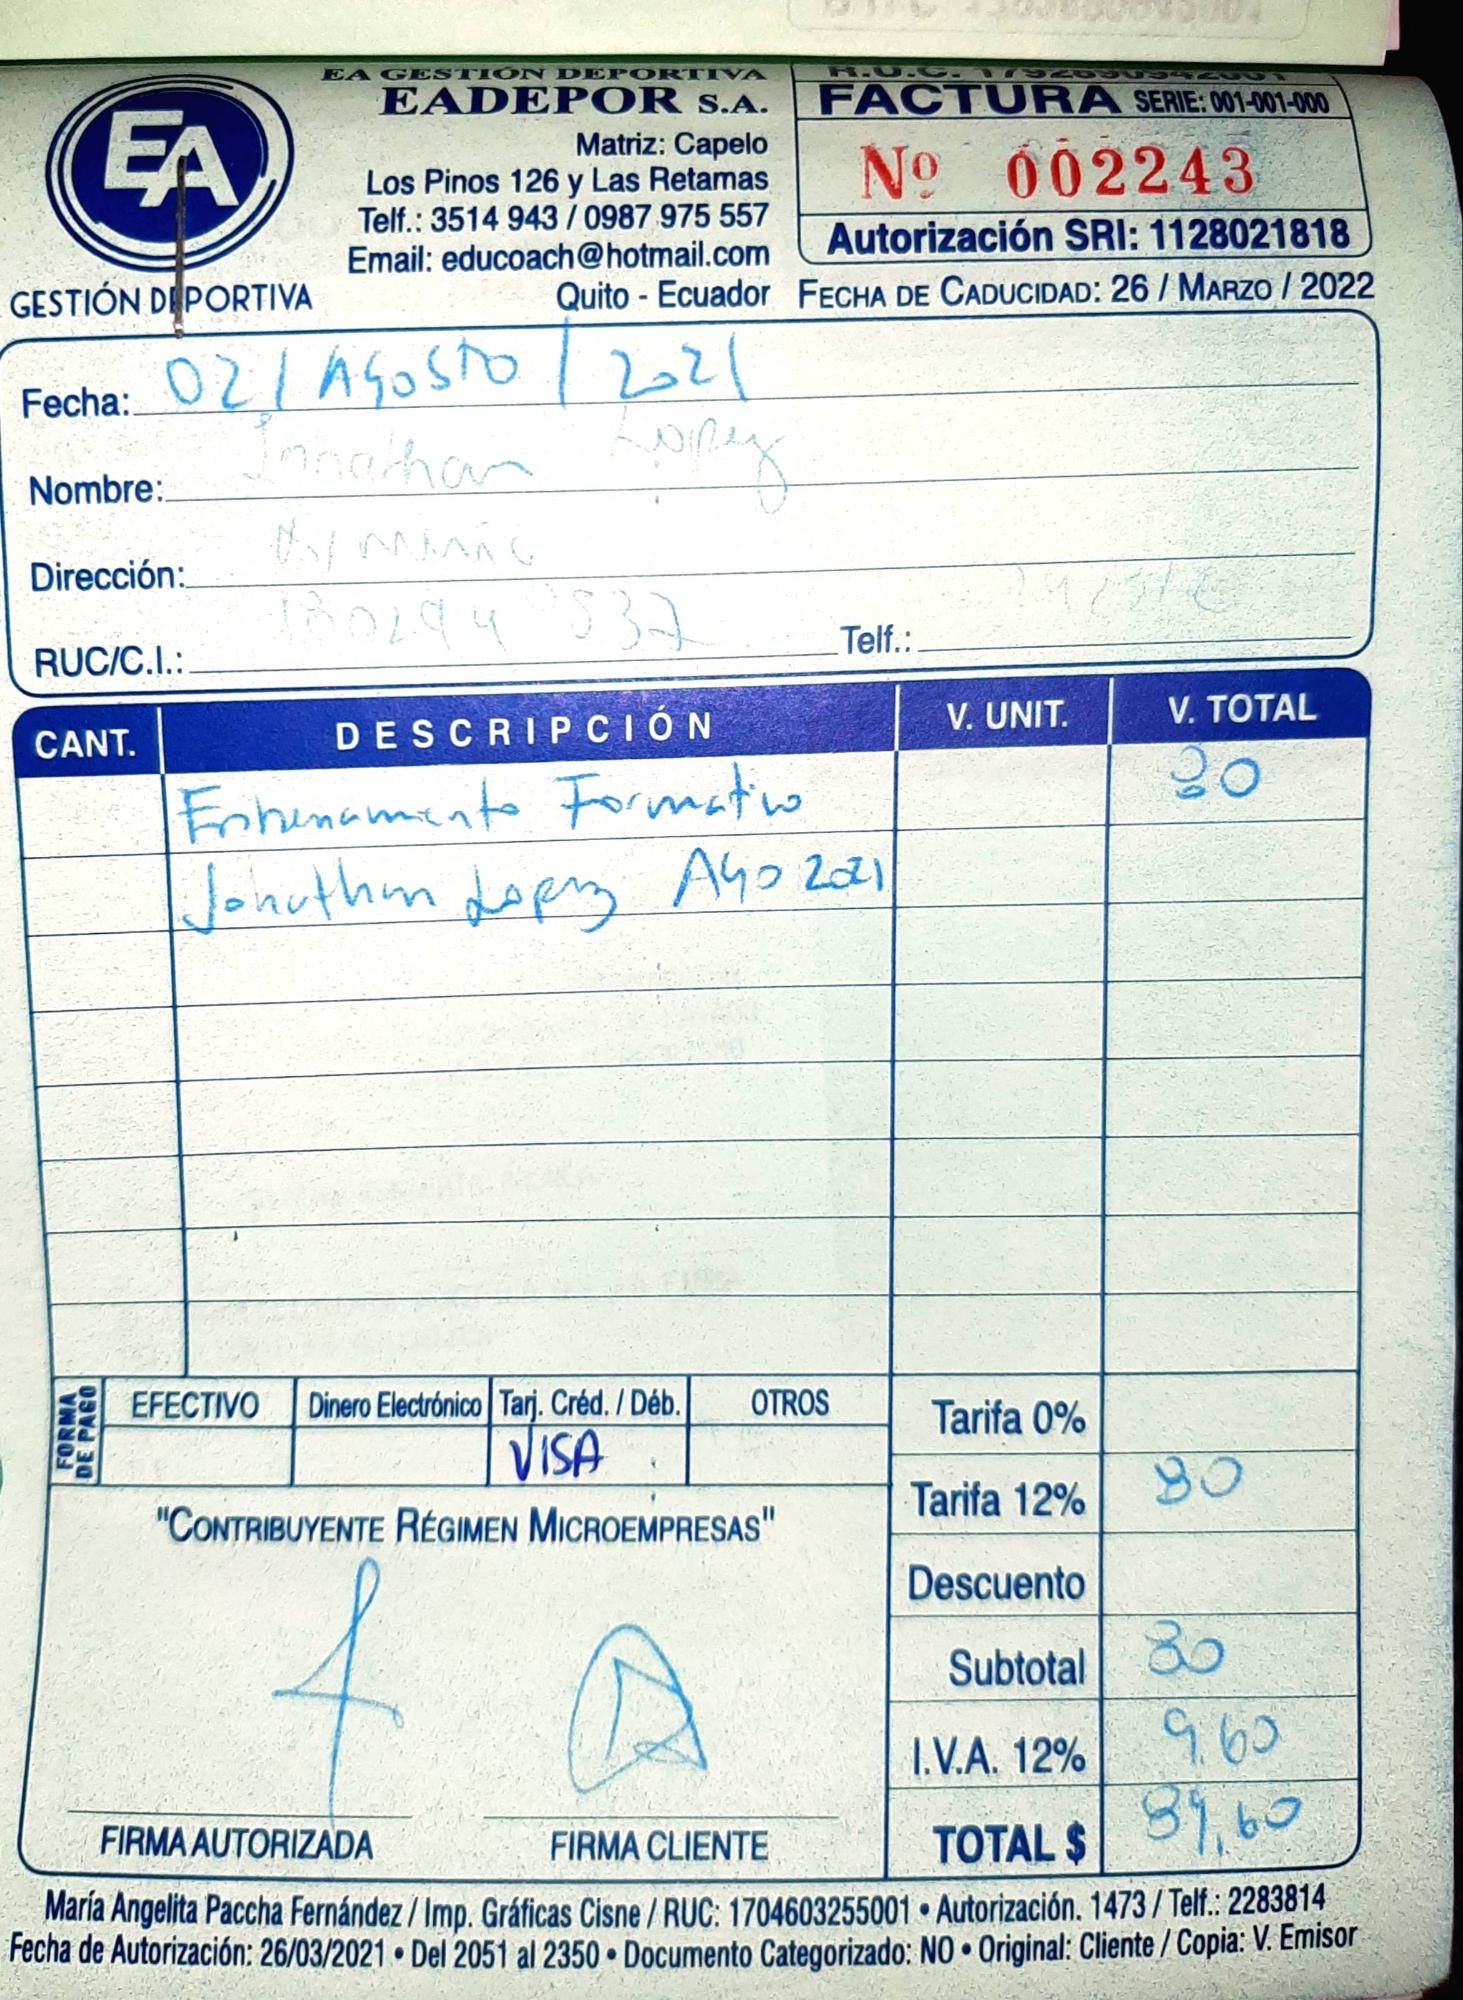 EA GESTIÓN DEPORTIVA
EADEPOR S.A.
Matriz: Capelo
Los Pinos 126 y Las Retamas
Telf.: 3514 943 / 0987 975 557
Email: educoach@hotmail.com
Quito - Ecuador
EA
GESTIÓN DEPORTIVA
R.U.C. 1792690942001
FACTURA SERIE: 001-001-000
Nº 002243
Autorización SRI: 1128021818
FECHA DE CADUCIDAD: 26 / MARZO / 2022
Fecha: 02 / AGOSTO / 2021
Nombre: Jonathan Lopez
Dirección:
RUC/C.I.: Telf.:
CANT. DESCRIPCIÓN V. UNIT. V. TOTAL
Entrenamiento Formativo 80
Jonathan Lopez AGO 2021
FORMA DE PAGO
EFECTIVO Dinero Electrónico Tarj. Créd. / Déb. OTROS
VISA
Tarifa 0%
Tarifa 12% 80
Descuento
Subtotal 80
I.V.A. 12% 9.60
TOTAL $ 89,60
"CONTRIBUYENTE RÉGIMEN MICROEMPRESAS"
FIRMA AUTORIZADA FIRMA CLIENTE
María Angelita Paccha Fernández / Imp. Gráficas Cisne / RUC: 1704603255001 • Autorización. 1473 / Telf.: 2283814
Fecha de Autorización: 26/03/2021 • Del 2051 al 2350 • Documento Categorizado: NO • Original: Cliente / Copia: V. Emisor